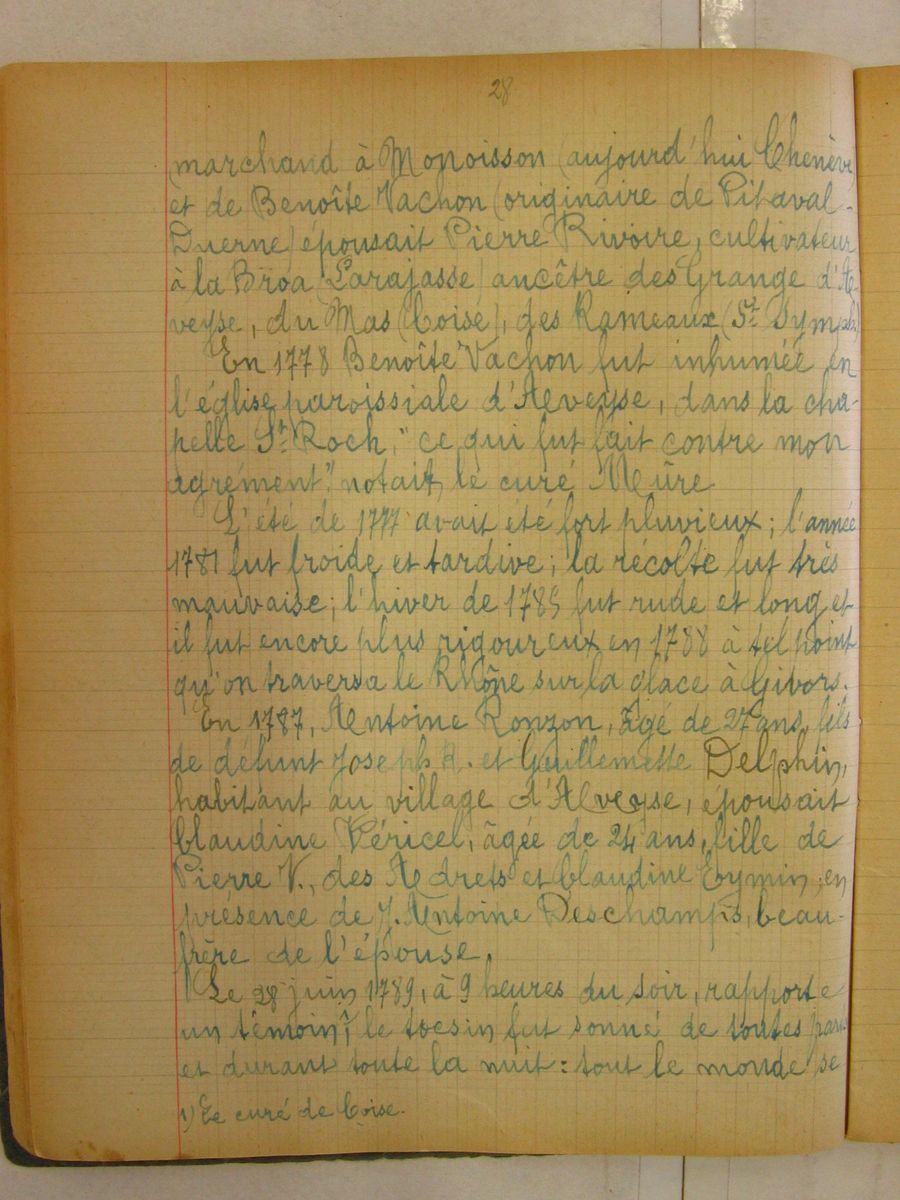 28
marchand à Monoisson (aujourd'hui Chenève)
et de Benoîte Vachon (originaire de Pitaval-
Duerne) épousait Pierre Rivoire, cultivateur
à la Broa (Larajasse) ancêtre des Grange d'A-
veyse, du Mas (Coise), des Rameaux (St. Symph.)
En 1778 Benoîte Vachon fut inhumée en
l'église paroissiale d'Aveyse, dans la cha-
pelle St. Roch, "ce qui fut fait contre mon
agrément", notait le curé Meûre
L'été de 1777 avait été fort pluvieux; l'année
1781 fut froide et tardive; la récolte fut très
mauvaise; l'hiver de 1785 fut rude et long et
il fut encore plus rigoureux en 1788 à tel point
qu'on traversa le Rhône sur la glace à Givors.
En 1787, Antoine Ronzon, âgé de 27 ans, fils
de défunt Joseph R. et Guillemette Delphin,
habitant au village d'Aveyse, épousait
Claudine Véricel, âgée de 24 ans, fille de
Pierre V., des Adrets et Claudine Eymin, en
présence de J. Antoine Deschamps, beau-
frère de l'épouse.
Le 28 juin 1789, à 9 heures du soir, rapporte
un témoin 1, le tocsin fut sonné de toutes parts
et durant toute la nuit: tout le monde se
1) Le curé de Coise.